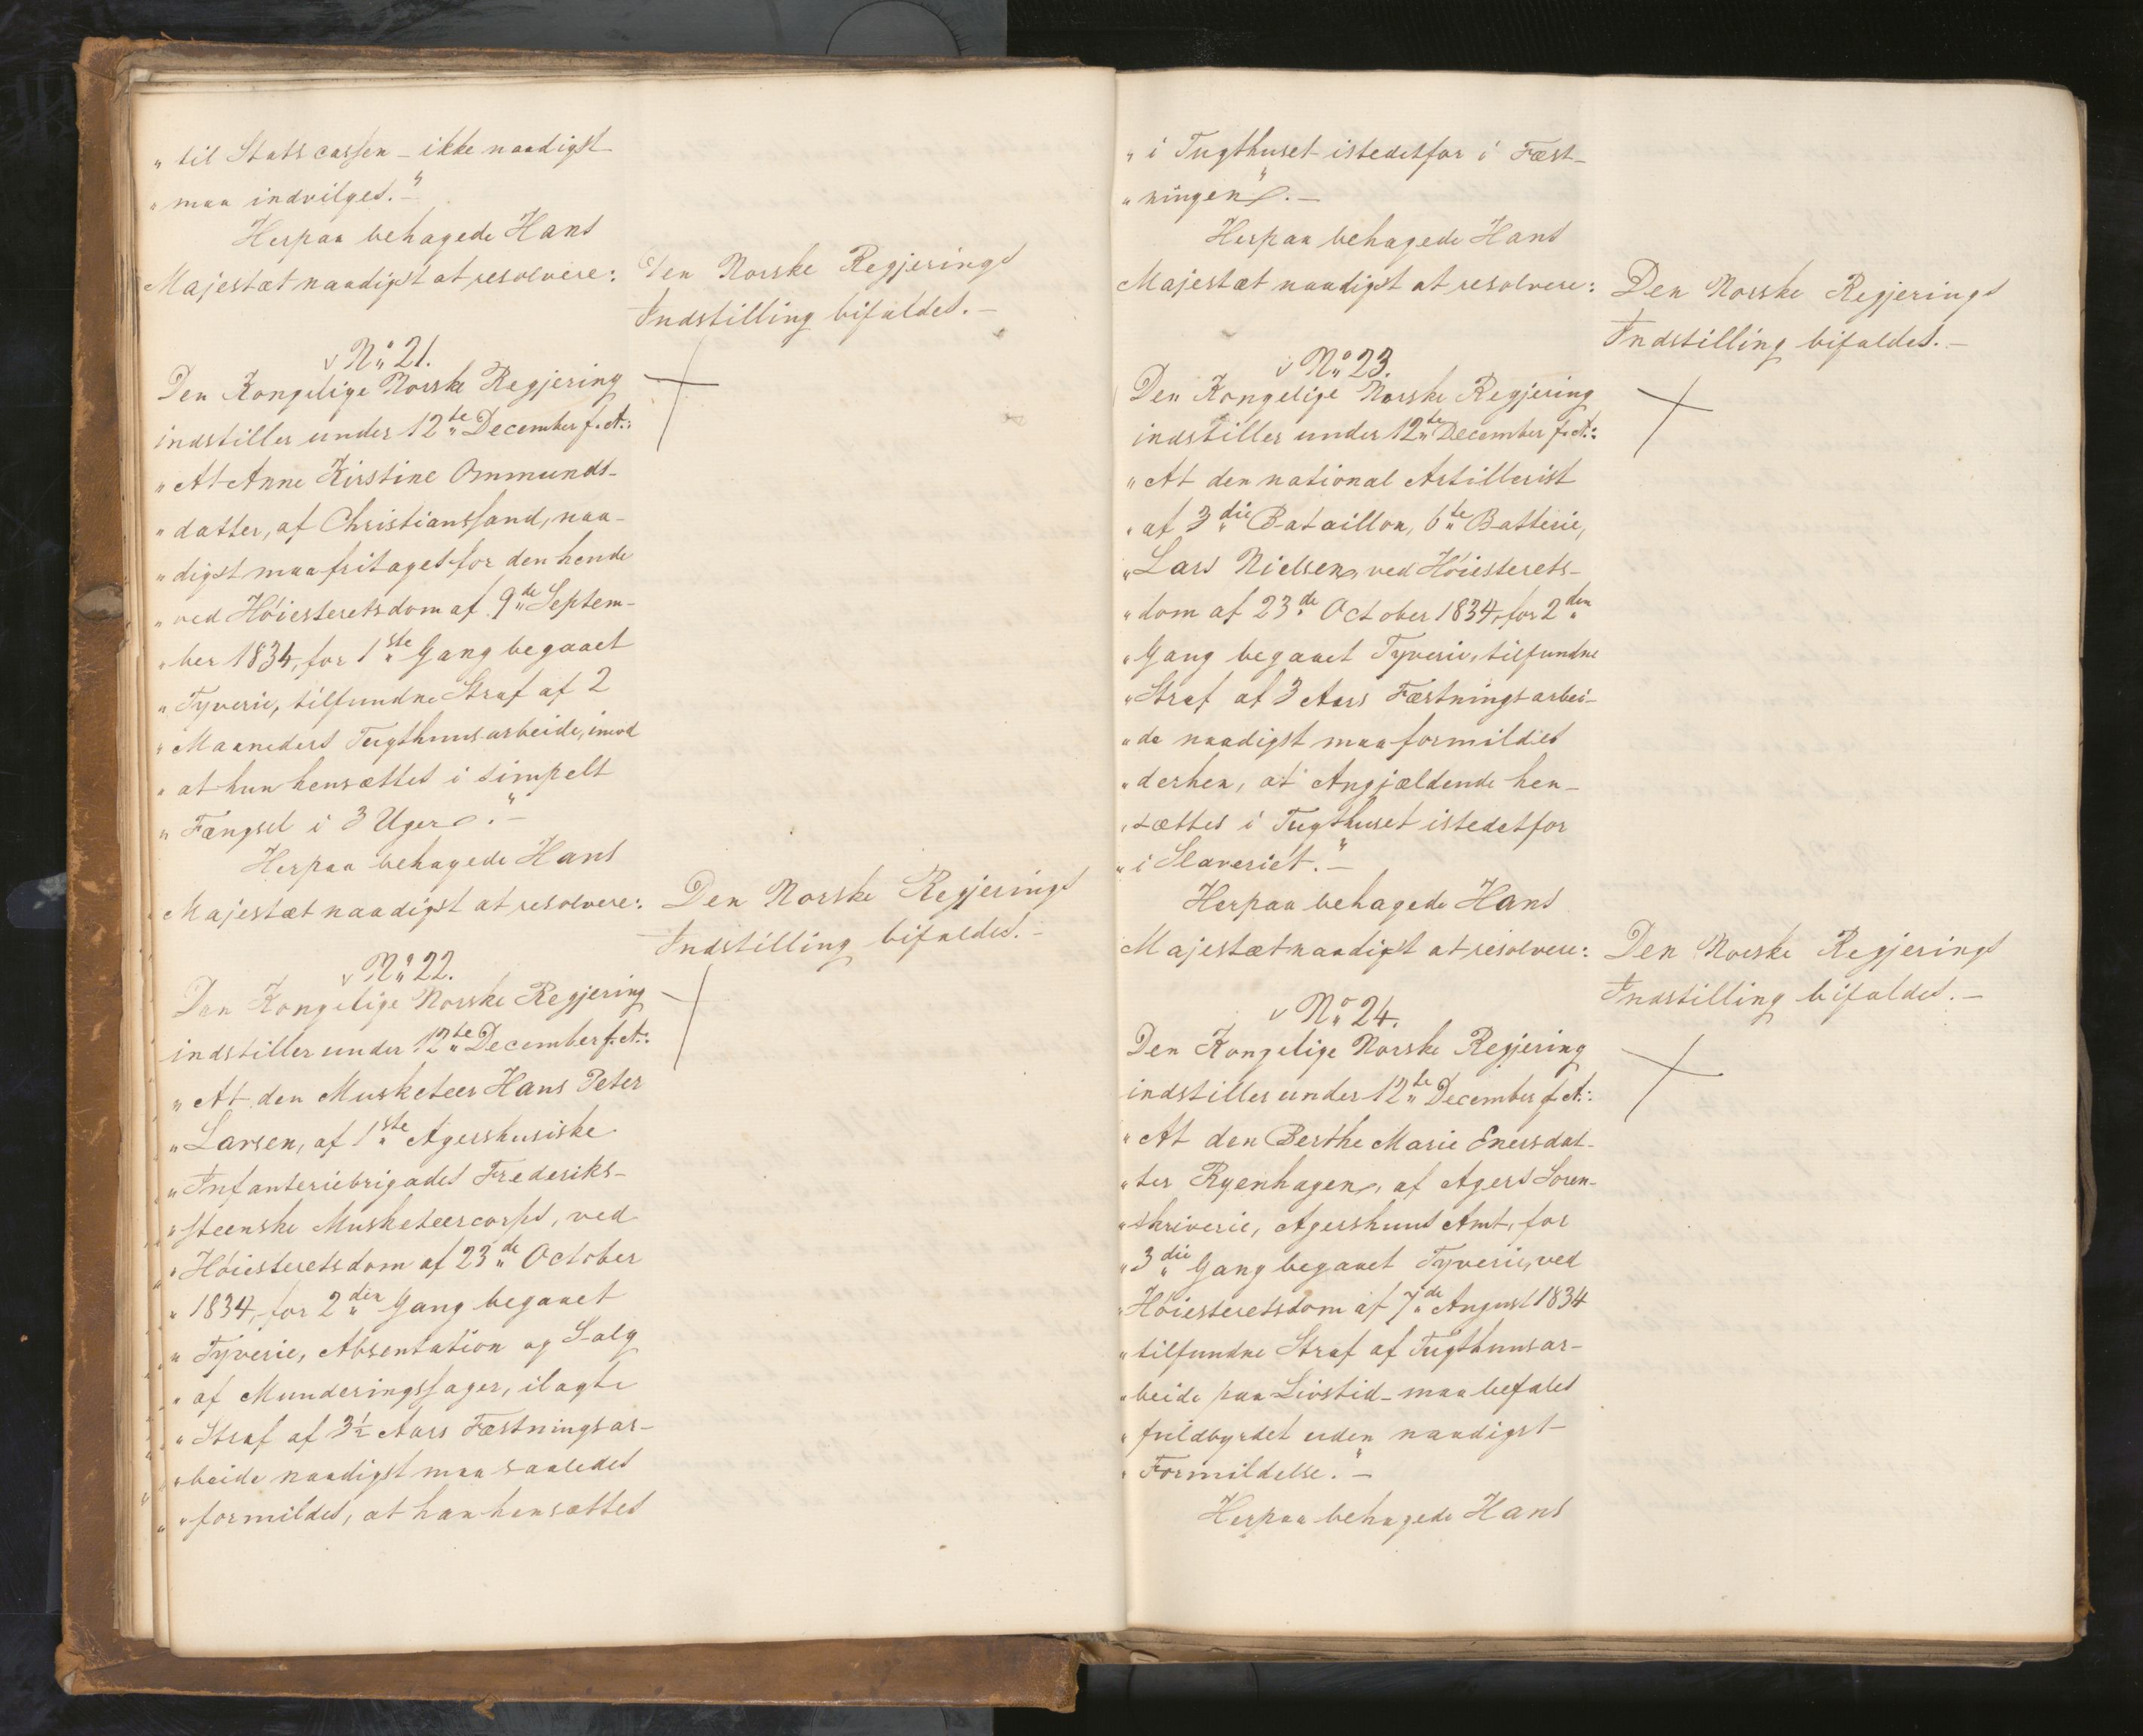 „ til Statscassen – ikke naadigst
„ maa indvilges." –
Herpaa behagede Hans
Majestæt naadigst at resolvere:
Den Norske Regjerings
Indstilling bifaldes. –
v No 21.
Den Kongelige Norske Regjering
indstiller under 12te December f. A.:
„ At Anne Kirstine Ommunds-
„ datter, af Christianssand, naa-
„ digst maa fritages for den hende
„ ved Höiesteretsdom af 9de Septem-
„ ber 1834, for 1ste Gang begaaet
„ Tyverie, tilfundne Straf af 2
„ Maaneders Tugthuusarbeide, imod
„ at hun hensættes i simpelt
„ Fængsel i 3 Uger". –
Herpaa behagede Hans
Majestæt naadigst at resolvere:
Den Norske Regjerings
Indstilling bifaldes. –
v No 22.
Den Kongelige Norske Regjering
indstiller under 12te December f. A.:
„ At den Musketeer Hans Peter
„ Larsen, af 1ste Agershusiske
„ Infanteriebrigades Frederiks-
„ steenske Musketeercorps, ved
„ Höiesteretsdom af 23de October
„ 1834, for 2den Gang begaaet
„ Tyverie, Absentation og Salg
„ af Munderingssager, ilagte
„ Straf af 3½ Aars Fæstningsar-
„ beide naadigst maa saaledes
„ formildes, at han hensættes
„ i Tugthuset istedetfor i Fæst-
„ ningen". –
Herpaa behagede Hans
Majestæt naadigst at resolvere:
Den Norske Regjerings
Indstilling bifaldes. –
v No 23.
Den Kongelige Norske Regjering
indstiller under 12te December f. A.:
„ At den national Artillerist
„ af 3die Bataillon, 6te Batterie,
„ Lars Nielsen, ved Höiesterets-
„ dom af 23de October 1834, for 2den
„ Gang begaaet Tyverie, tilfundne
„ Straf af 3 Aars Fæstningsarbei-
„ de naadigst maa formildes
„ derhen, at Angjældende hen-
„ sættes i Tugthuset istedetfor
„ i Slaveriet." –
Herpaa behagede Hans
Majestæt naadigst at resolvere:
Den Norske Regjerings
Indstilling bifaldes. –
v No 24.
Den Kongelige Norske Regjering
indstiller under 12te December f. A.:
„ At den Berthe Marie Enersdat-
„ ter Ryenhagen, af Agers Soren-
„ skriverie, Agershuus Amt, for
„ 3die Gang begaaet Tyverie, ved
„ Höiesteretsdom af 7de August 1834
„ tilfundne Straf af Tugthuusar-
„ beide paa Livstid – maa befales
„ fuldbyrdet uden naadigst
„ Formildelse." –
Herpaa behagede Hans